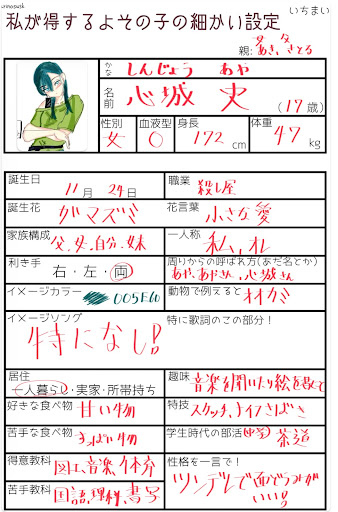 いちまい
私が得するよその子の細かい設定
親:
かな しんじょう あや
名前 心城 史 (17歳)
性別 血液型 身長 体重
女 O 172 cm 47 kg
誕生日 11月 24日 職業 殺し屋
誕生花 ガマズミ 花言葉 小さな愛
家族構成 父、母、自分、妹 一人称 私、オレ
利き手 右・左・両 周りからの呼ばれ方(あだ名とか)
あや、あやさん、心城さん
イメージカラー 005E60 動物で例えると オオカミ
イメージソング 特に歌詞のこの部分!
特になし!
居住 趣味 音楽を聞いたり絵を
一人暮らし・実家・所帯持ち
好きな食べ物 甘い物 特技 スケッチ、ナイフさばき
苦手な食べ物 すっぱい物 学生時代の部活 茶道
得意教科 図工、音楽、体育 性格を一言で!
苦手教科 国語、理科、書写 ツンデレで
いい!!